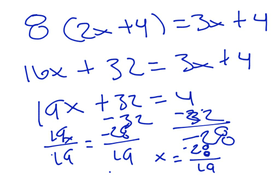 8 (2x+4) = 3x+4
16x + 32 = 3x+4
19x + 32 = 4
-32 -32
19x/19 = -28/19 -28
x = -28/19